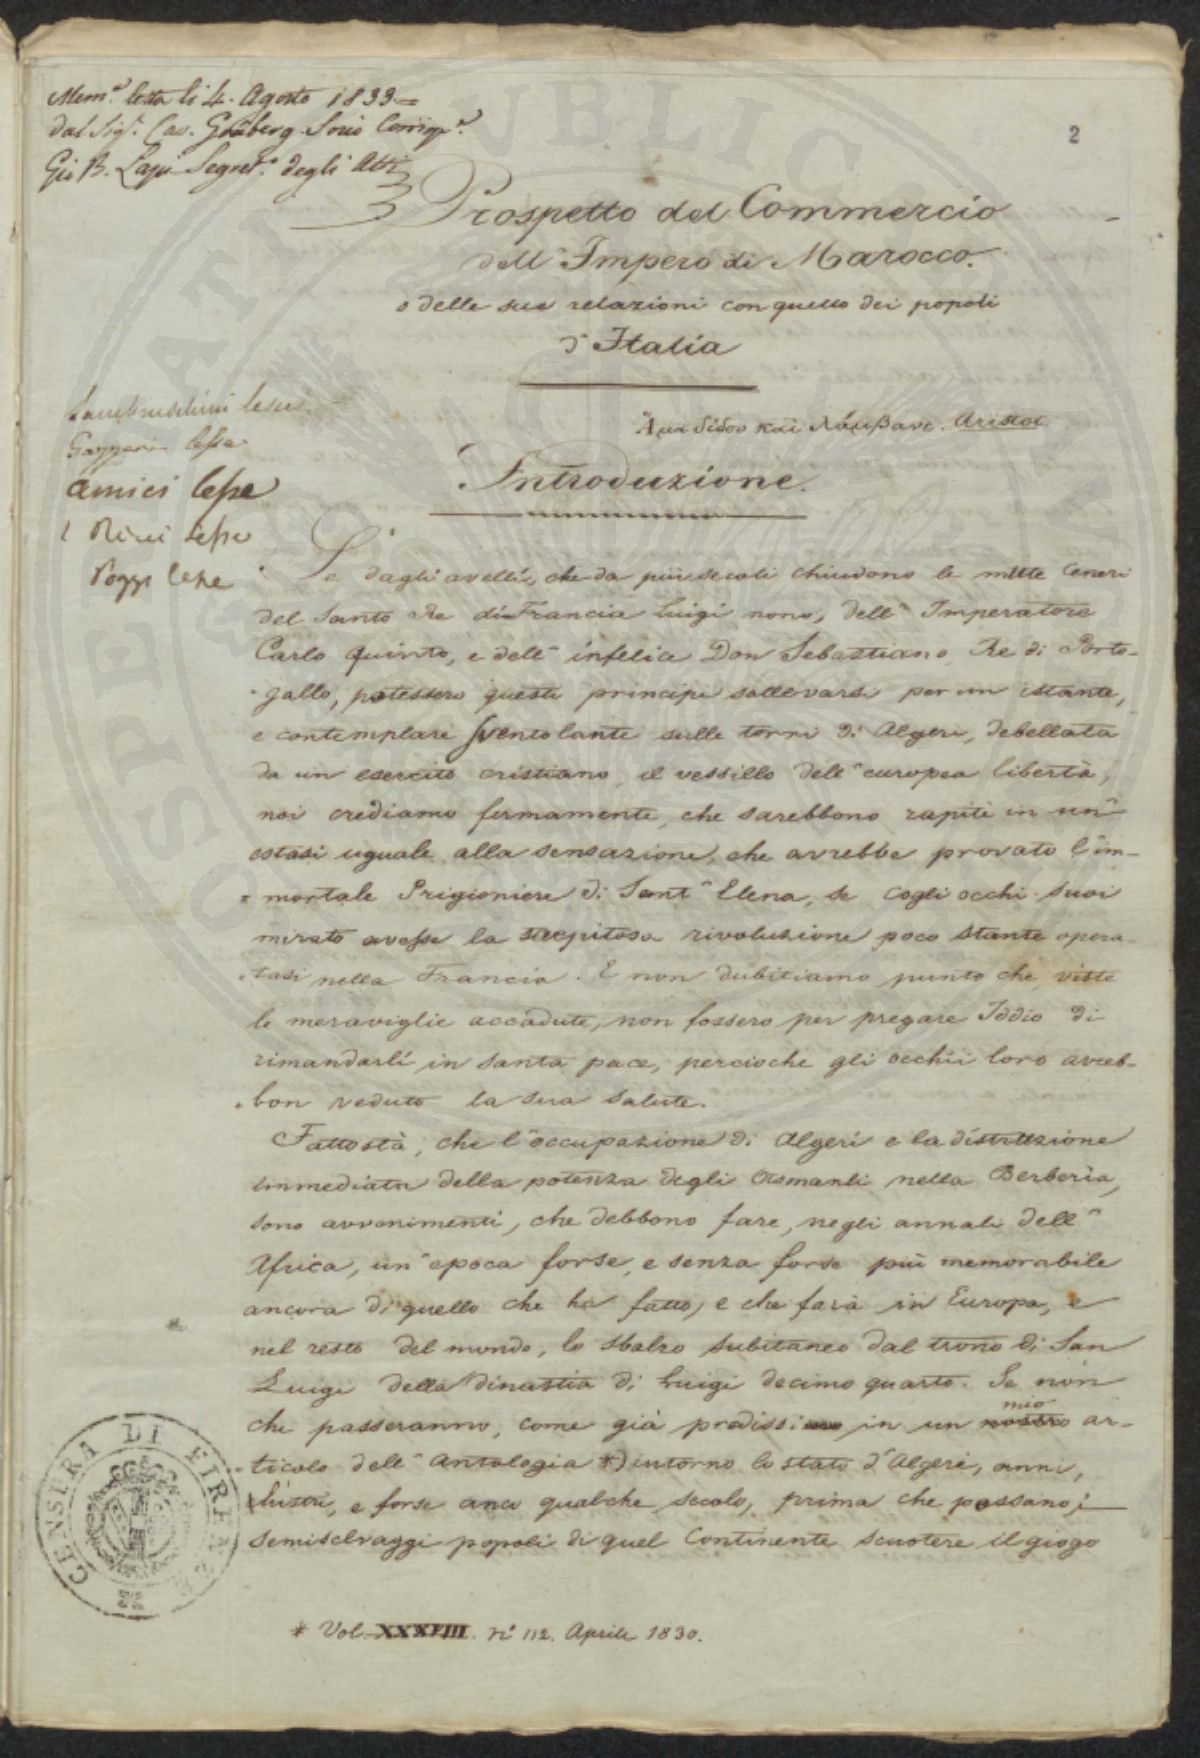 Mem.ª letta li 4. Agosto 1833=
dal Sig.r Cav. Gräberg Socio Corrisp.e
Gio B. Lapi Segret.o degli Atti
2
Prospetto del Commercio
dell' Impero di Marocco.
e delle sue relazioni con quello dei popoli
d'Italia
Lambruschini lesse
Gazzeri lesse
Amici lesse
Ricci lesse
Poggi lesse
Ἅμα δίδου καὶ λάμβανε. Aristot
Introduzione.
Se dagli avelli, che da più secoli chiudono le mute ceneri
del Santo Re di Francia Luigi nono, dell' Imperatore
Carlo Quinto, e dell' infelice Don Sebastiano, Re di Porto-
gallo, potessero questi principi sollevarsi per un istante,
e contemplare sventolante sulle torri di Algeri, debellata
da un esercito cristiano, il vessillo dell' europea libertà,
noi crediamo fermamente, che sarebbono rapiti in un'
estasi uguale alla sensazione, che avrebbe provato l'im-
=mortale Prigioniere di Sant' Elena, se cogli occhi suoi
mirato avesse la strepitosa rivoluzione poco stante opera-
-tasi nella Francia. E non dubitiamo punto che viste
le meraviglie accadute, non fossero per pregare Iddio di
rimandarli in santa pace, percioche gli occhii loro avreb-
-bon veduto la sua salute.
Fattostà, che l'occupazione di Algeri e la distruzione
immediata della potenza degli Osmanli nella Berberìa,
sono avvenimenti, che debbono fare, negli annali dell'
Africa, un' epoca forse, e senza forse più memorabile
ancora di quello che ha fatto, e che farà in Europa, e
nel resto del mondo, lo sbalzo subitaneo dal trono di San
Luigi della dinastia di Luigi decimo quarto. Se non
che passeranno, come già predissi in un nostro mio ar-
-ticolo dell' Antologia *) intorno lo stato d'Algeri, anni,
lustri, e forse anco qualche secolo, prima che possano i
semiselvaggi popoli di quel Continente scuotere il giogo
* Vol. XXXVIII. n.o 112. Aprile 1830.
CENSURA DI FIRENZE